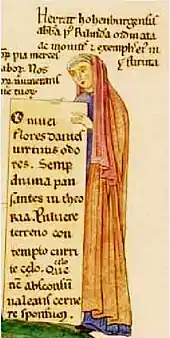 Herrat hohenburgensis
abba p' Rilinda ordinata
ac monitis & exempl' ei' in
stituta
pia merces
labor. Nos
O nivei
flores dantes
virtutis odo
res. Semp
divina pau
santes in theo
ria. Pulvere
terreno con
tempto curri
te celo. Que
nc absconsu
valeatis cerne
re sponsu.